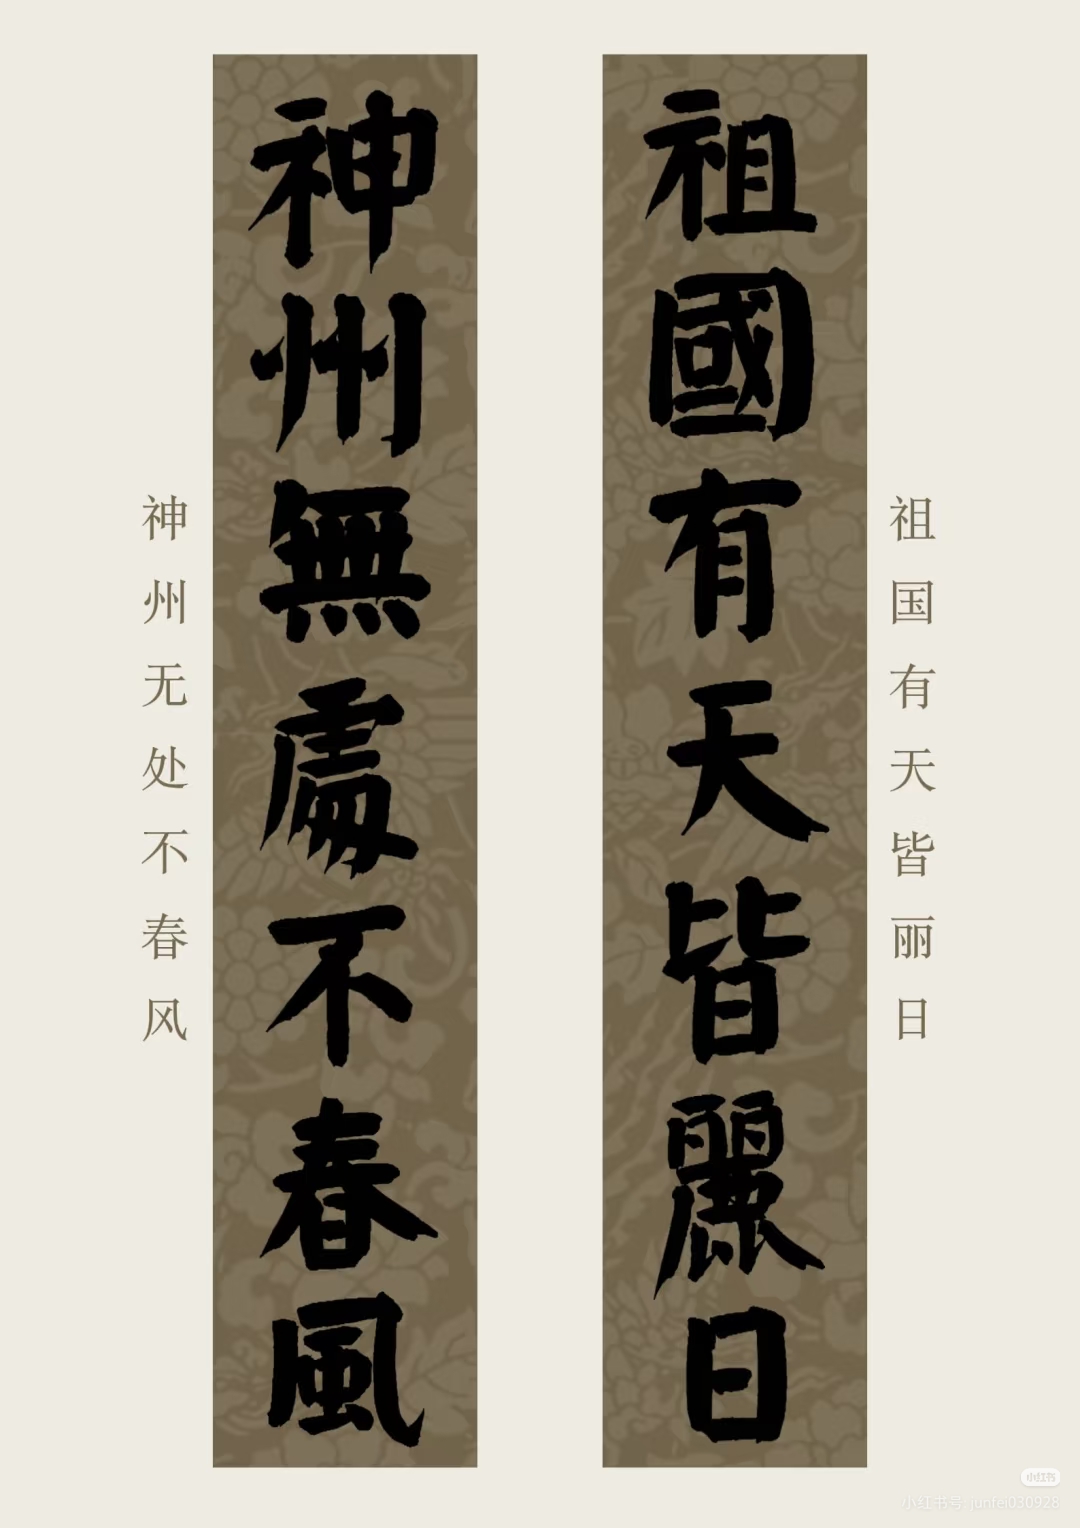 祖國有天皆麗日
神州無處不春風
祖国有天皆丽日
神州无处不春风
小红书
小红书号: junfei030928